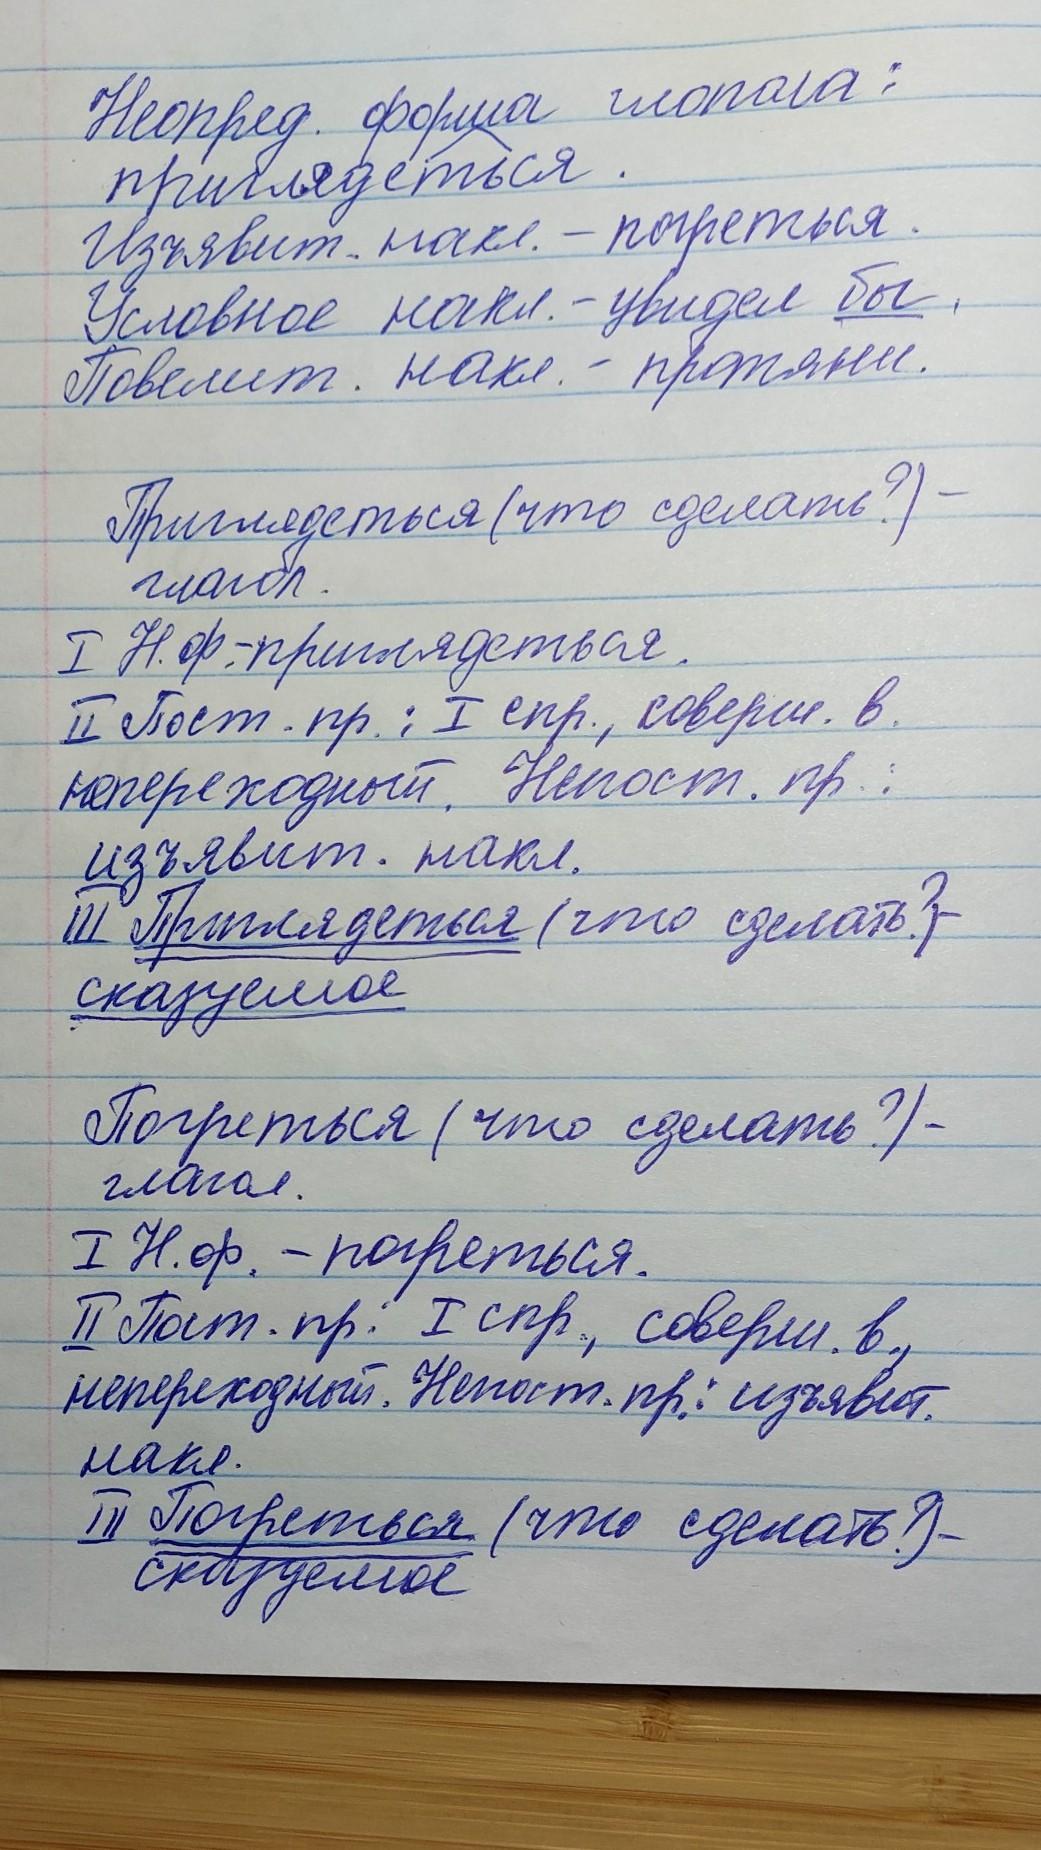 Неопред. форма глогола:
приглядеться.
Изъявит. накл. - погреться.
Условное накл. - увидел бы.
Повелит. накл. - протяни.
Приглядеться (что сделать?) -
глагол.
I Н.ф. - приглядеться.
II Пост. пр.: I спр., соверш. в.
непереходный. Непост. пр.:
изъявит. накл.
III Приглядеться (что сделать?) -
сказуемое
Погреться (что сделать?) -
глагол.
I Н.ф. - погреться.
II Пост. пр: I спр., соверш. в.,
непереходный. Непост. пр.: изъявит.
накл.
III Погреться (что сделать?) -
сказуемое